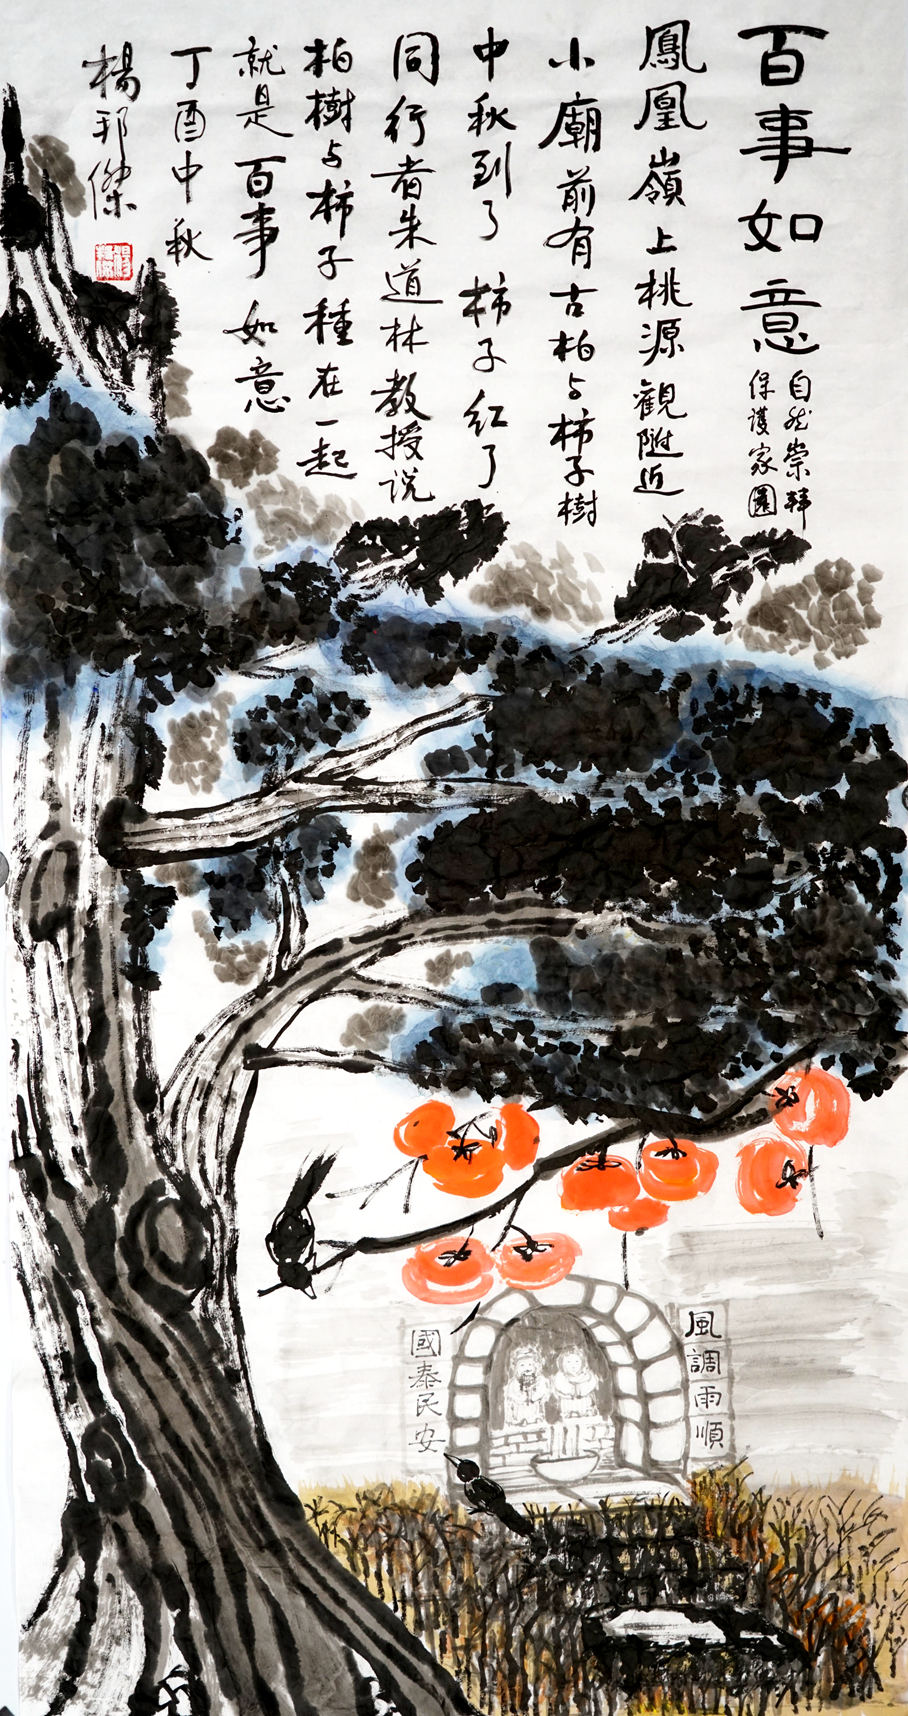 百事如意
自然崇拜
保護家園
鳳凰嶺上桃源觀附近
小廟前有古柏与柿子樹
中秋到了 柿子红了
同行者朱道林教授说
柏樹与柿子種在一起
就是百事如意
丁酉中秋
楊邦傑
風調雨順
國泰民安